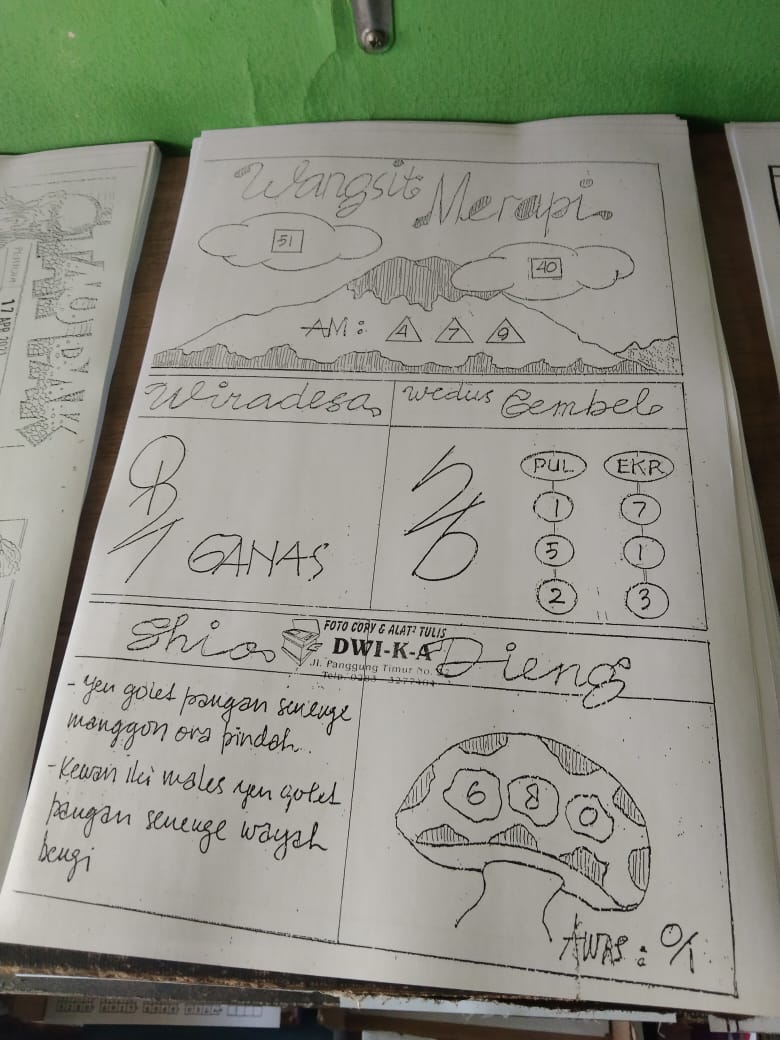 Wangsit Merapi
51
40
AM : 4 7 9
Wiradesa
wedus Gembel
GANAS
PUL EKR
1 7
5 1
2 3
FOTO COPY & ALAT² TULIS
DWI-K-A
Jl. Panggung Timur No.
Telp. 0283
Shio
Dieng
- Yen golet pangan senenge
manggon ora pindah..
- Kewan iki males yen golet
pangan senenge wayah
bengi
6 8 0
AWAS : 0/1
17 APR